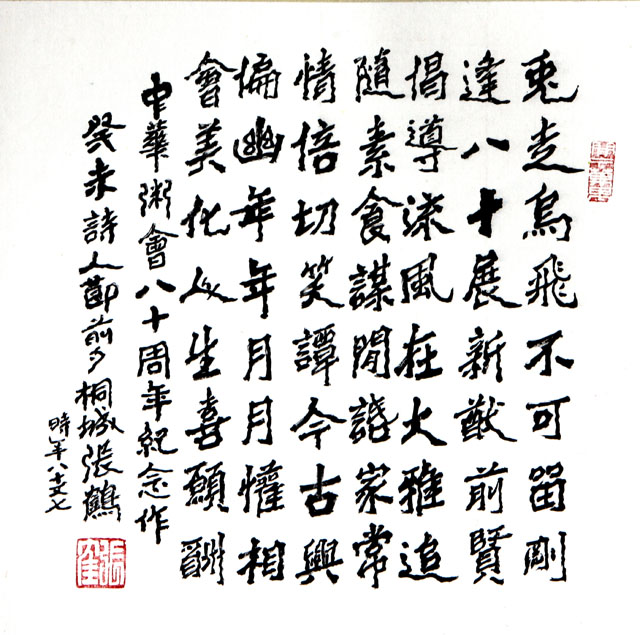 兎走烏飛不可留剛
逢八十展新猷前賢
倡導流風在大雅追
隨素食謀閒話家常
情倍切笑譚今古興
偏幽年年月月懽相
會美化人生喜願酬
中華粥會八十周年紀念作
癸未詩人節前夕桐城張鶴
時年八十又七